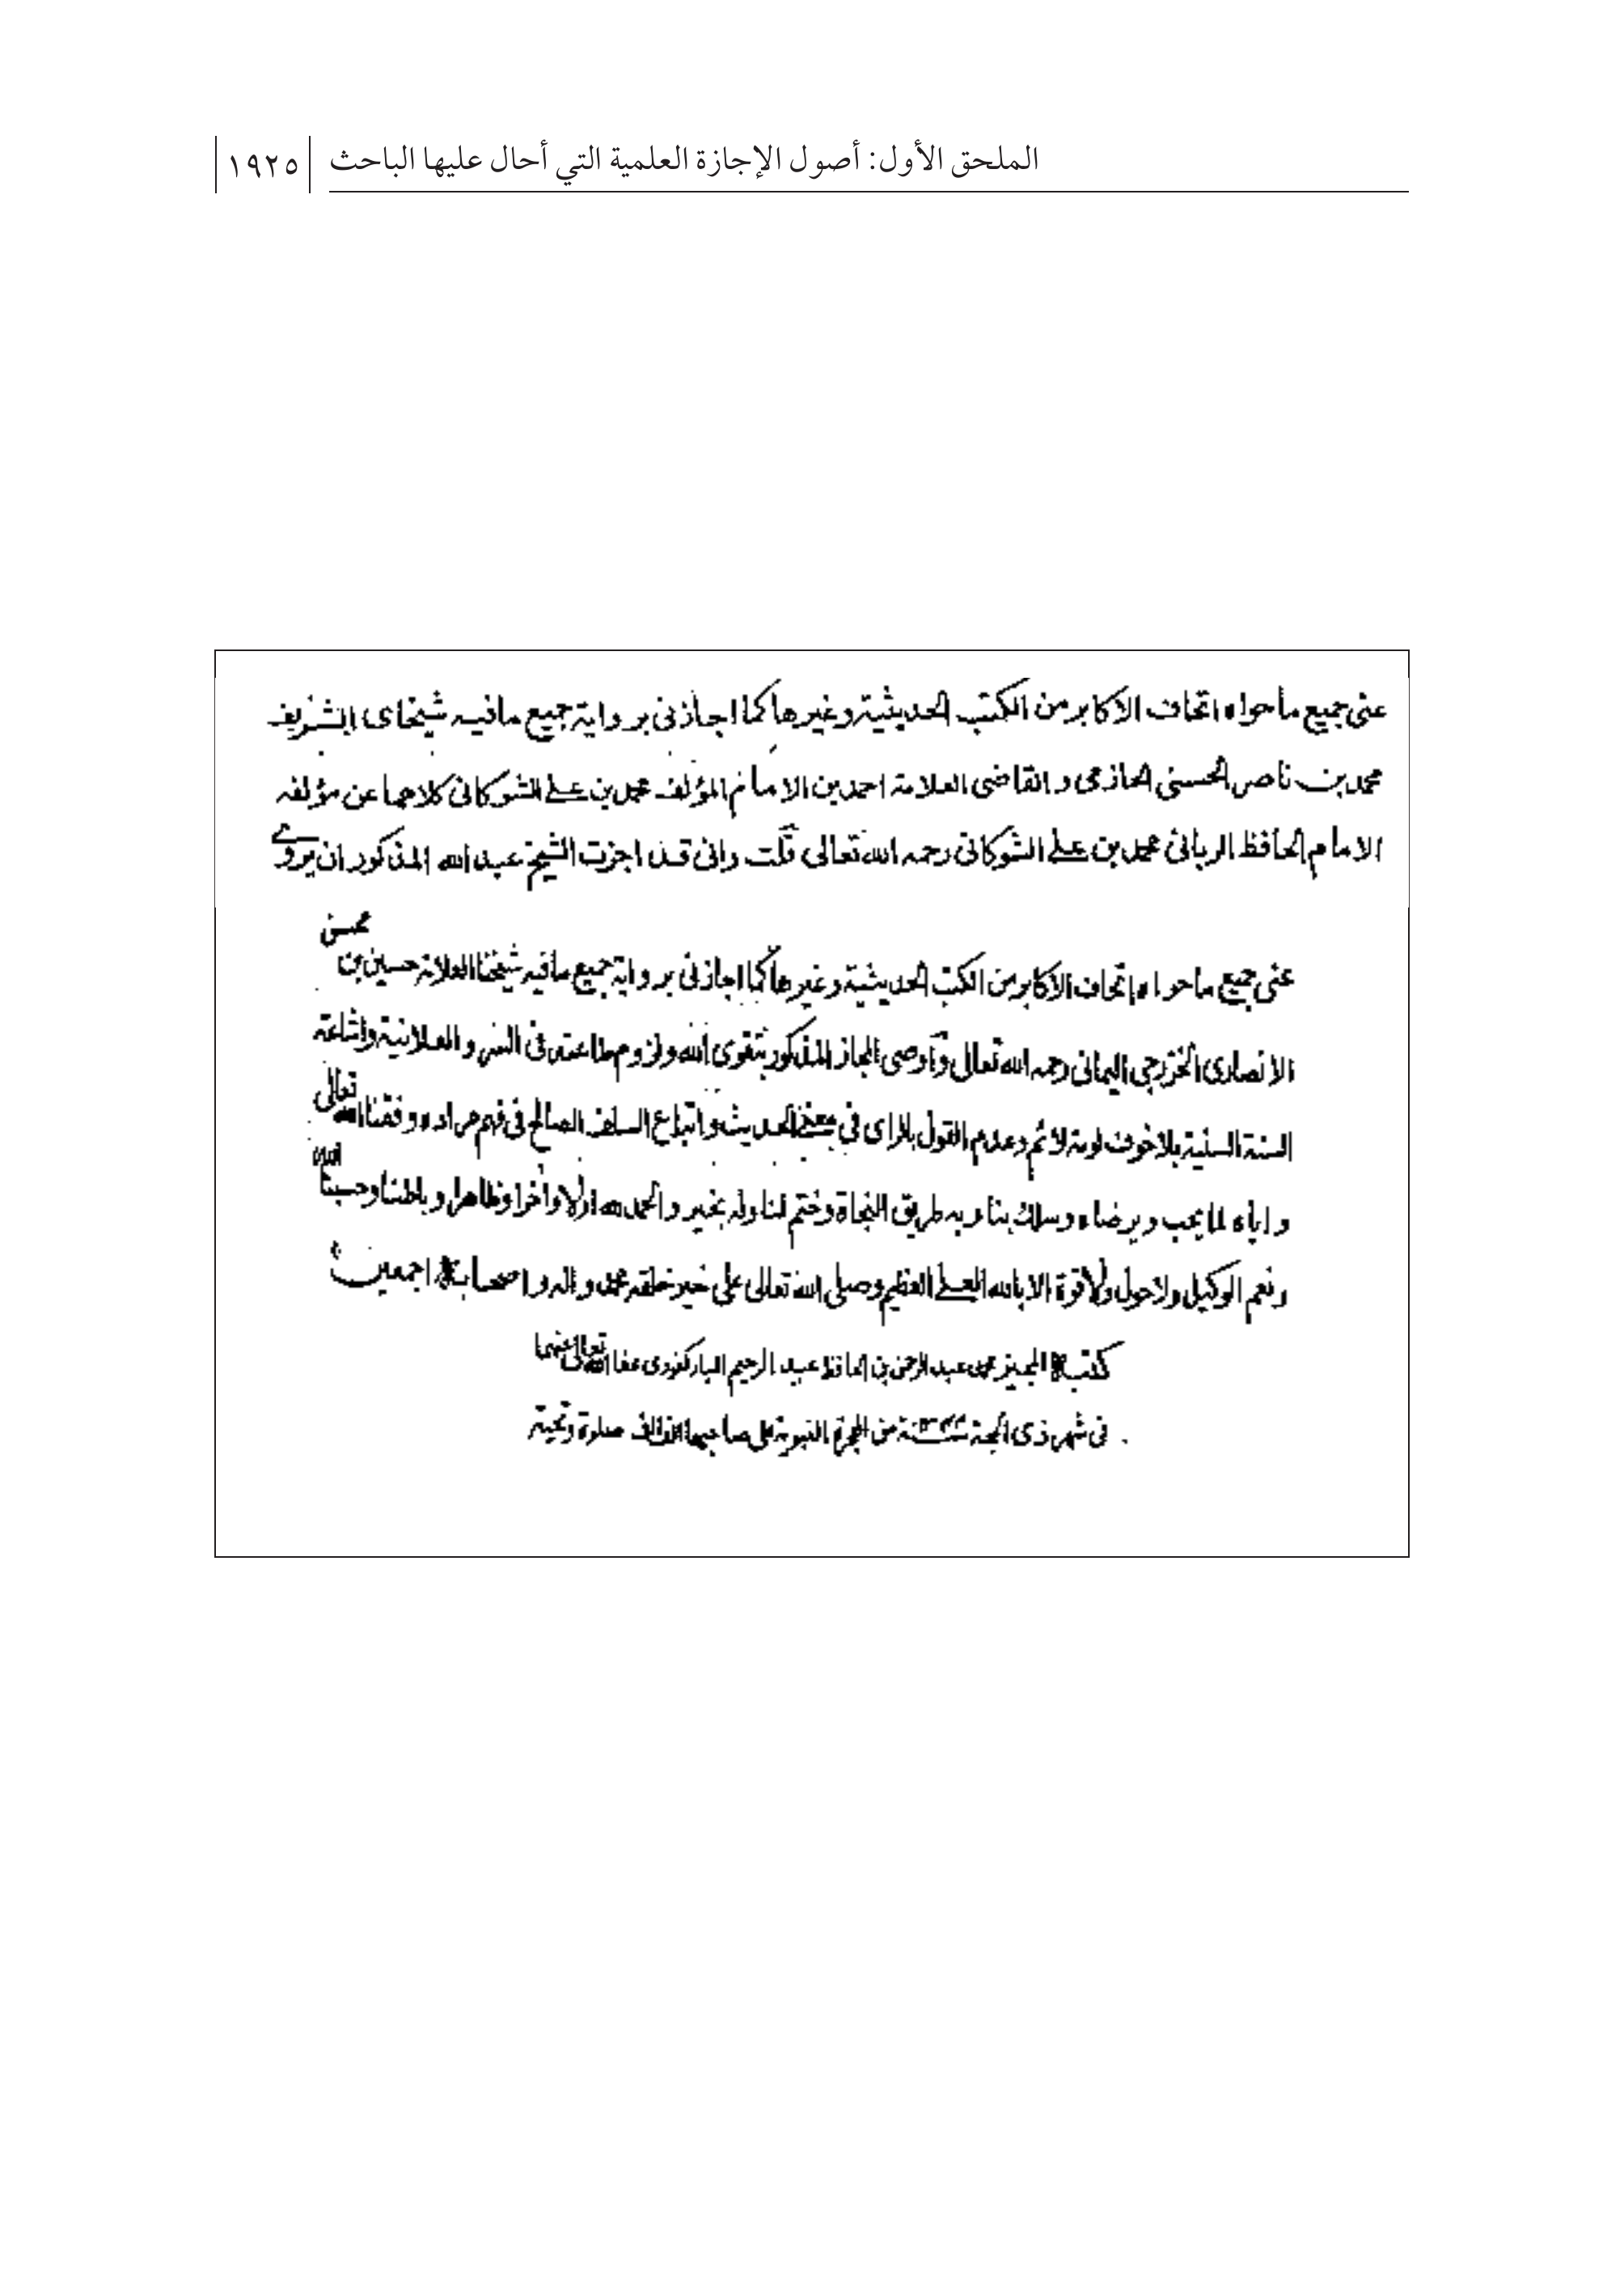 الملحق الأول: أصول الإجازة العلمية التي أحال عليها الباحث ١٩٢٥
عنى جميع ماحواه اتحاف الاكابر من الكتب الحديثية وغيرها كما اجازنى برواية جميع مافيه شيخاى الشريف
محمد بن ناصر الحسنى الحازمى والقاضى العلامة احمد بن الامام المؤلف محمد بن على الشوكانى كلاهما عن مؤلفه
الامام الحافظ الربانى محمد بن على الشوكانى رحمه الله تعالى قلت وانى قد اجزت الشيخ عبد الله المذكور ان يروى
عنى جميع ماحواه اتحاف الاكابر من الكتب الحديثية وغيرها كما اجازنى برواية جميع مافيه شيخنا العلامة حسين بن محسن
الانصارى الخزرجى اليمانى رحمه الله تعالى وأوصى المجاز المذكور بتقوى الله ولزوم طاعته فى السر والعلانية واشاعة
السنة السنية بلاخوف لومة لائم وعدم القول بالراى فى الحديث واتباع السلف الصالح فى فهم مراده وفقنا الله تعالى
واياه لما يحب ويرضاه وسلك بنا وبه طريق النجاة وختم لنا وله بخير والحمد لله اولا وآخرا وظاهرا وباطنا وحسبنا الله
ونعم الوكيل ولاحول ولاقوة الا بالله العلى العظيم وصلى الله تعالى على خير خلقه محمد واله واصحابه اجمعين
كتبه المجيز محمد عبد الرحمن بن الحافظ عبد الرحيم المباركفورى عفا الله تعالى عنهما
فى شهر ذى الحجة من الهجرة النبوية على صاحبها الف الف صلوة وتحية